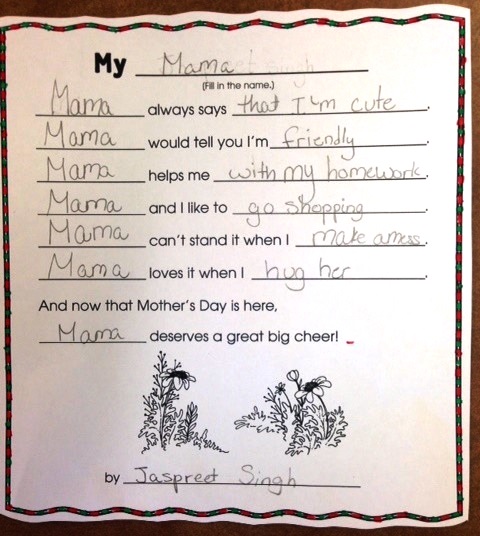 My Mama
(Fill in the name.)
Mama always says that I'm cute.
Mama would tell you I'm friendly.
Mama helps me with my homework.
Mama and I like to go shopping.
Mama can't stand it when I make a mess.
Mama loves it when I hug her.
And now that Mother's Day is here,
Mama deserves a great big cheer!
by Jaspreet Singh